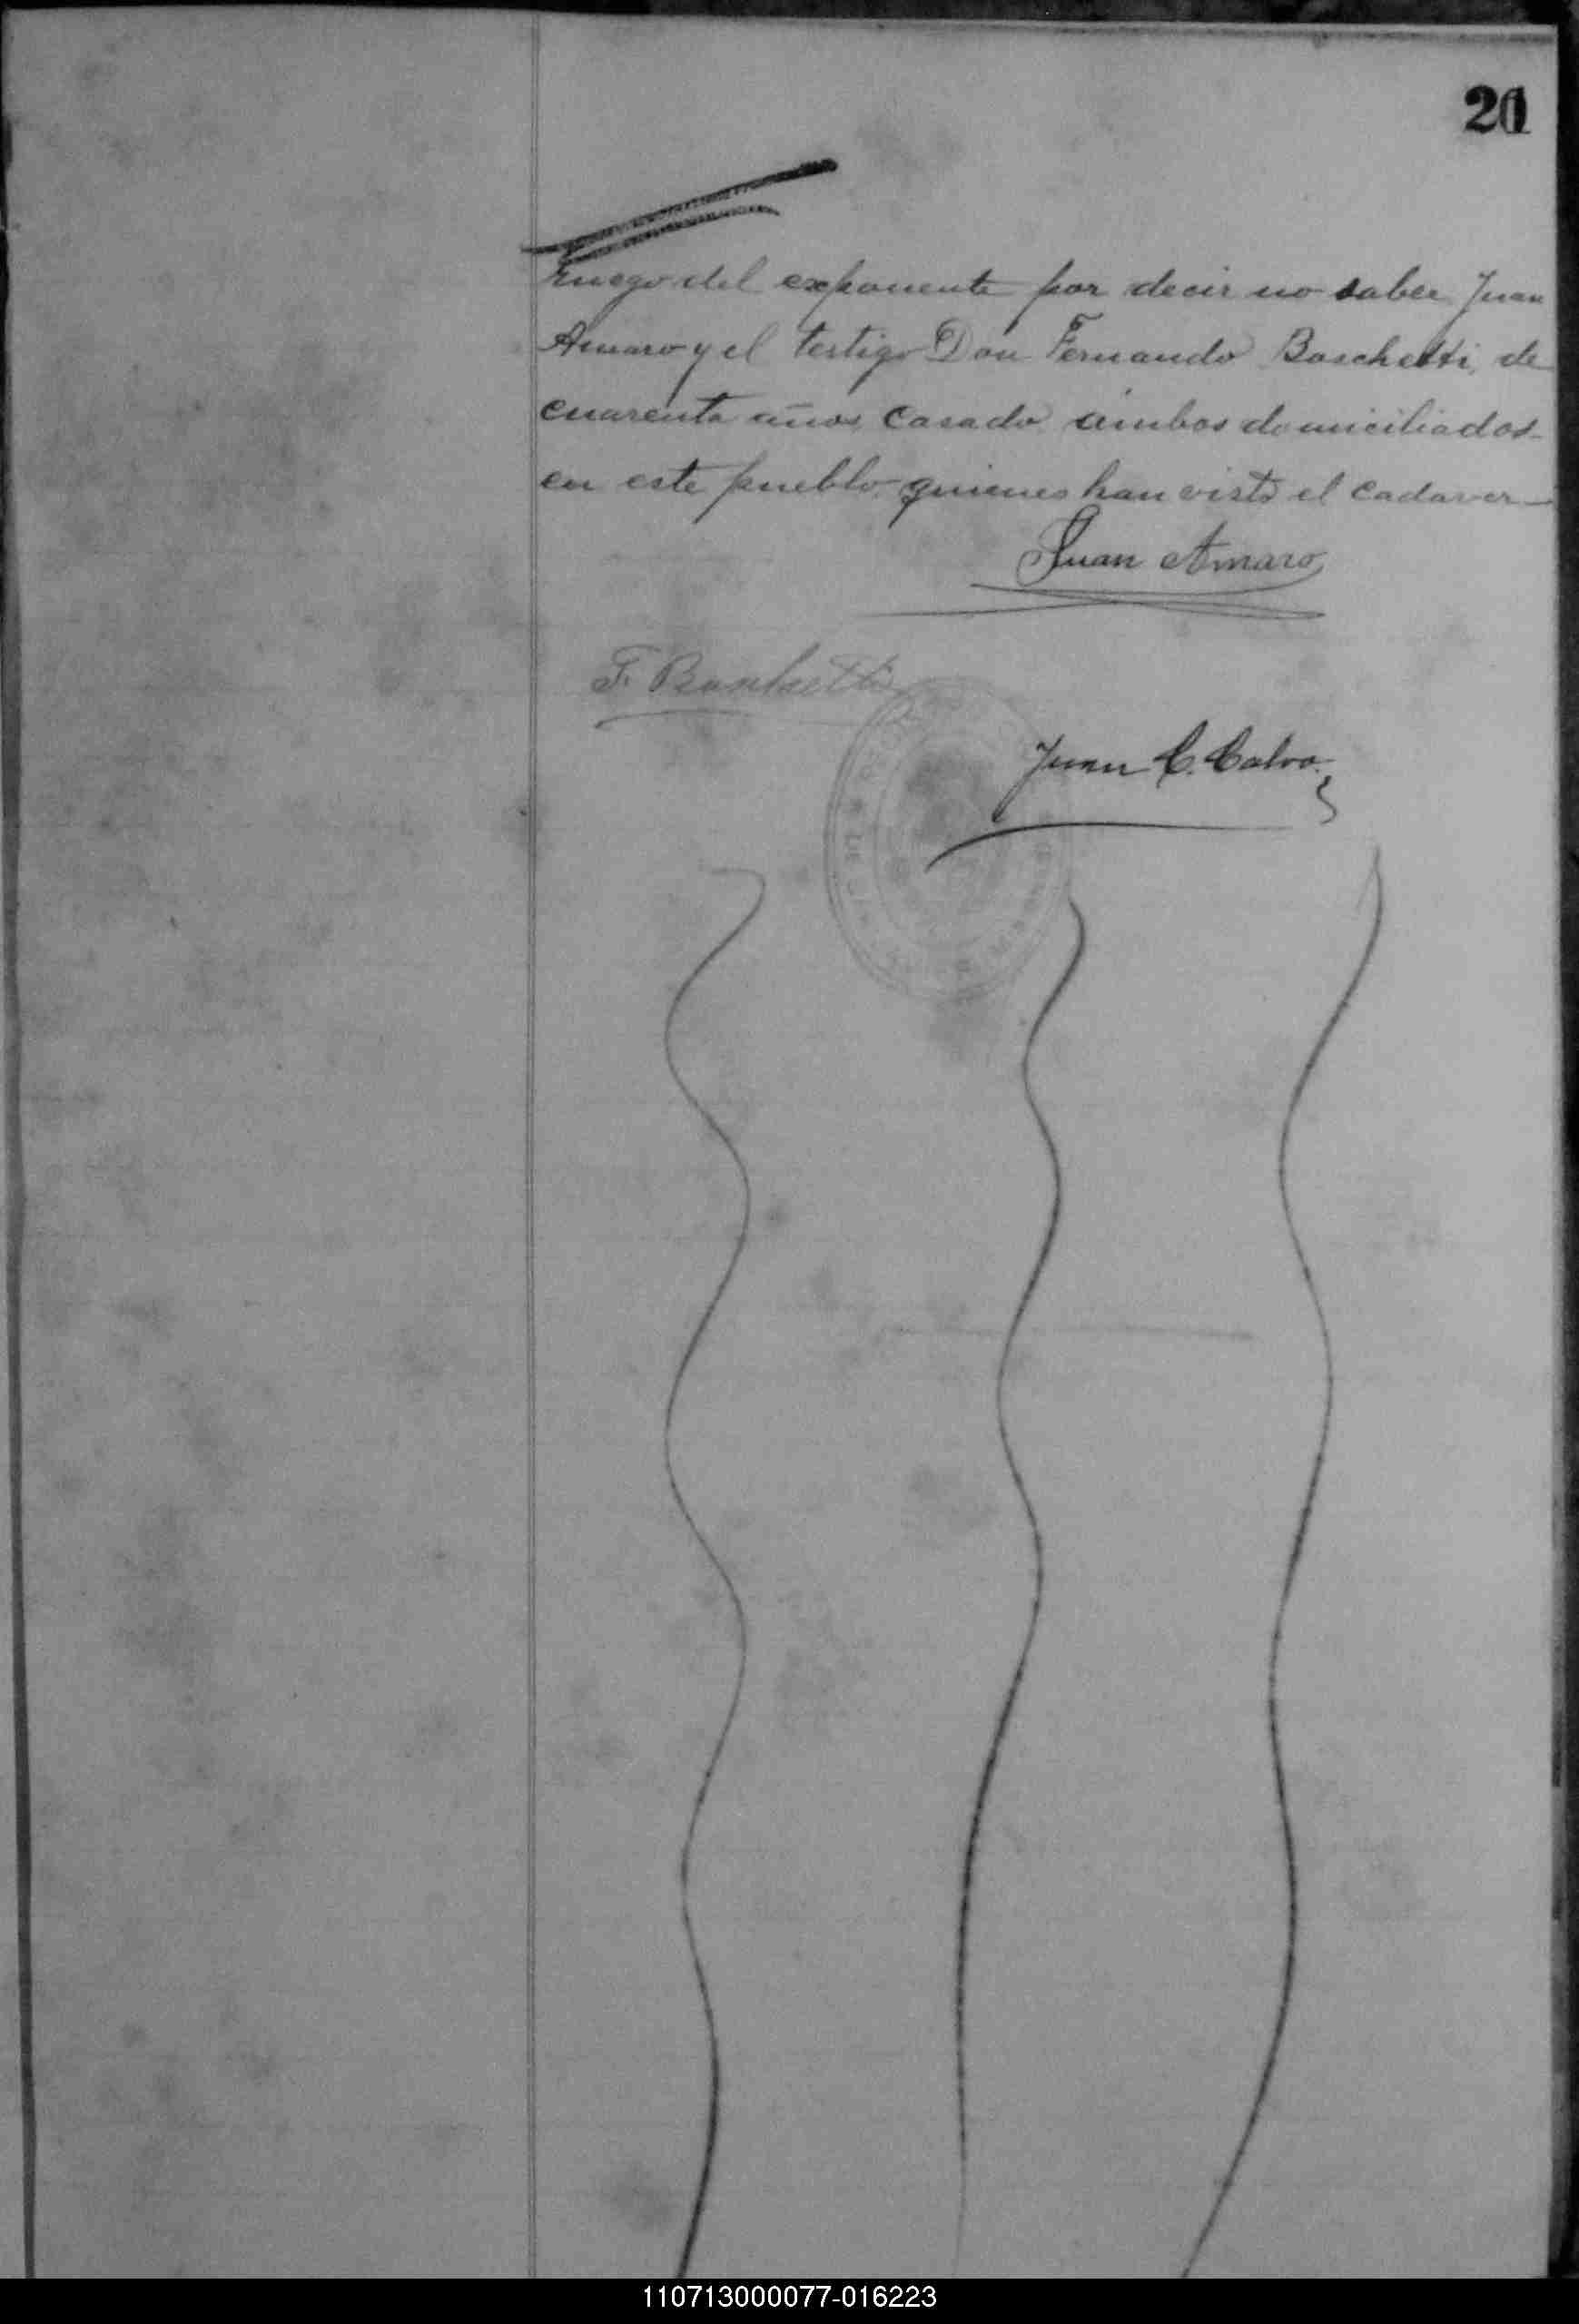 20
ruego del exponente por decir no saber Juan
Amaro y el testigo Don Fernando Boschetti, de
cuarenta años, casado ambos domiciliados
en este pueblo, quienes han visto el cadaver
Juan Amaro
F. Boschetti
Juan C. Calvo
110713000077-016223